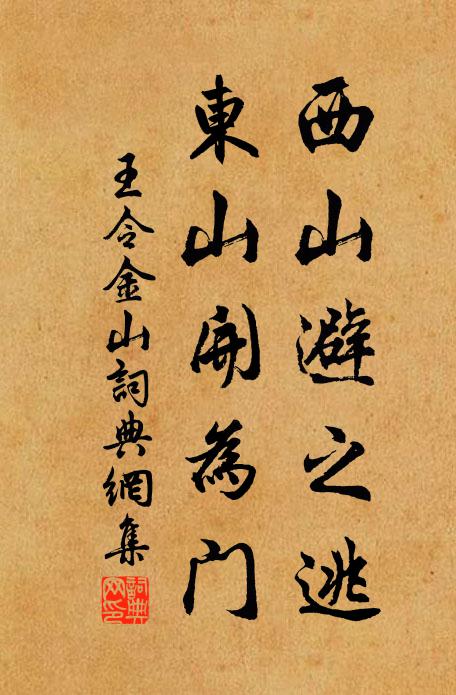 西山避之逃
東山開為門
王令金山詞典網集
詞典網印